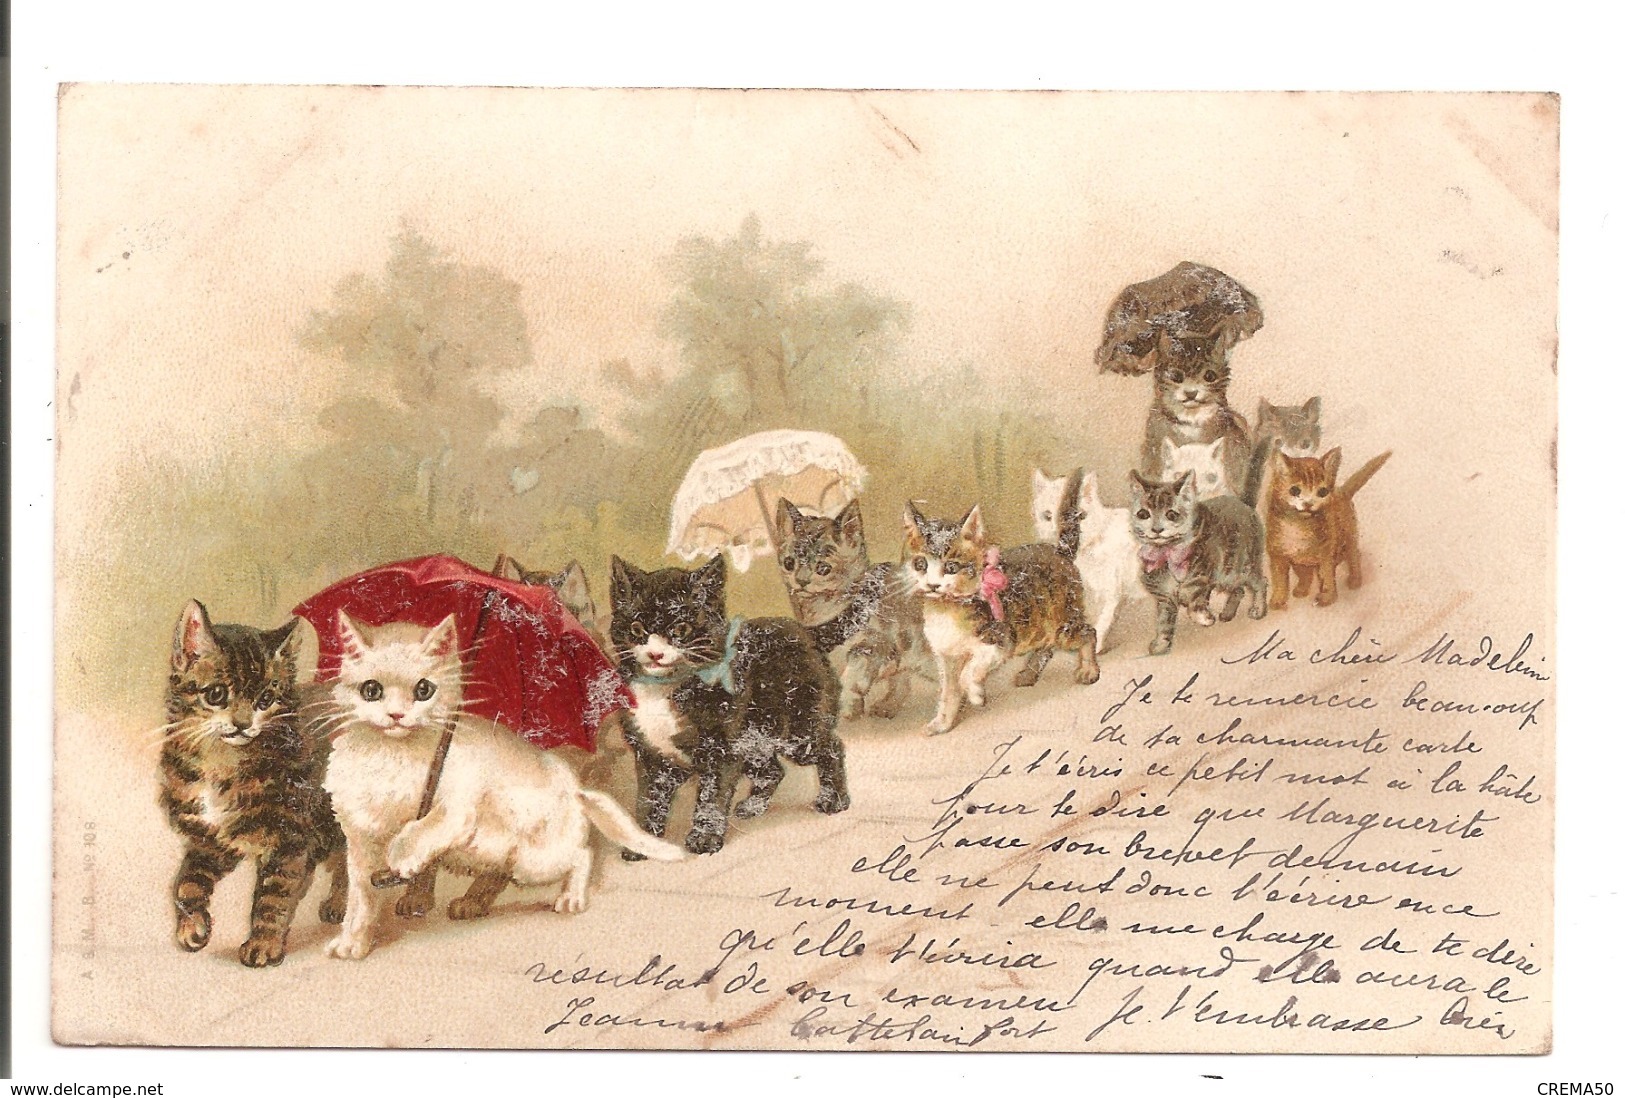 Ma chère Madelein
Je te remercie beaucoup
de ta charmante carte
Je t'écris ce petit mot à la hâte
pour te dire que Marguerite
passe son brevet demain
elle ne peut donc t'écrire en ce
moment elle me charge de te dire
qu'elle t'écrira quand elle aura le
résultat de son examen Je t'embrasse bien
fort
Jeanne
A. S. M. B. Nº 108
www.delcampe.net
CREMA50